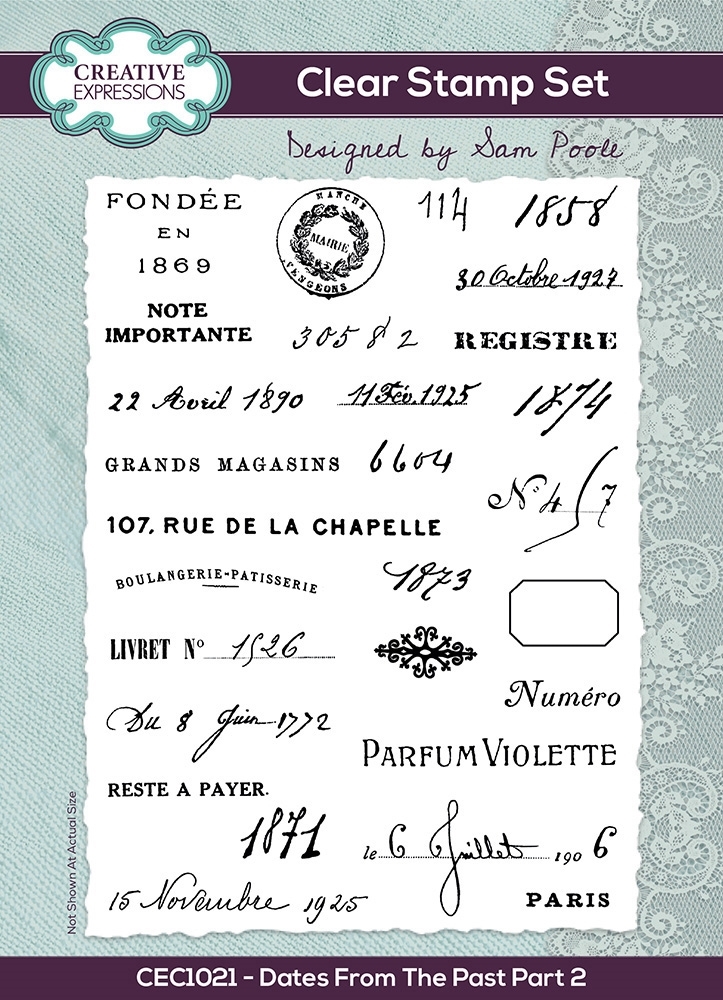 CREATIVE
EXPRESSIONS
Clear Stamp Set
Designed by Sam Poole
FONDÉE
EN
1869
MANCHE
MAIRIE
VENGEONS
114
1858
30 Octobre 1927
NOTE
IMPORTANTE
30582
REGISTRE
22 Avril 1890
11 Fév. 1925
1874
GRANDS MAGASINS
6604
Nº 4/7
107, RUE DE LA CHAPELLE
BOULANGERIE-PATISSERIE
1873
LIVRET Nº 1526
Numéro
Du 8 Juin 1772
PARFUM VIOLETTE
RESTE A PAYER.
1871
le 6 Juillet 1906
15 Novembre 1925
PARIS
Not Shown At Actual Size
CEC1021 - Dates From The Past Part 2